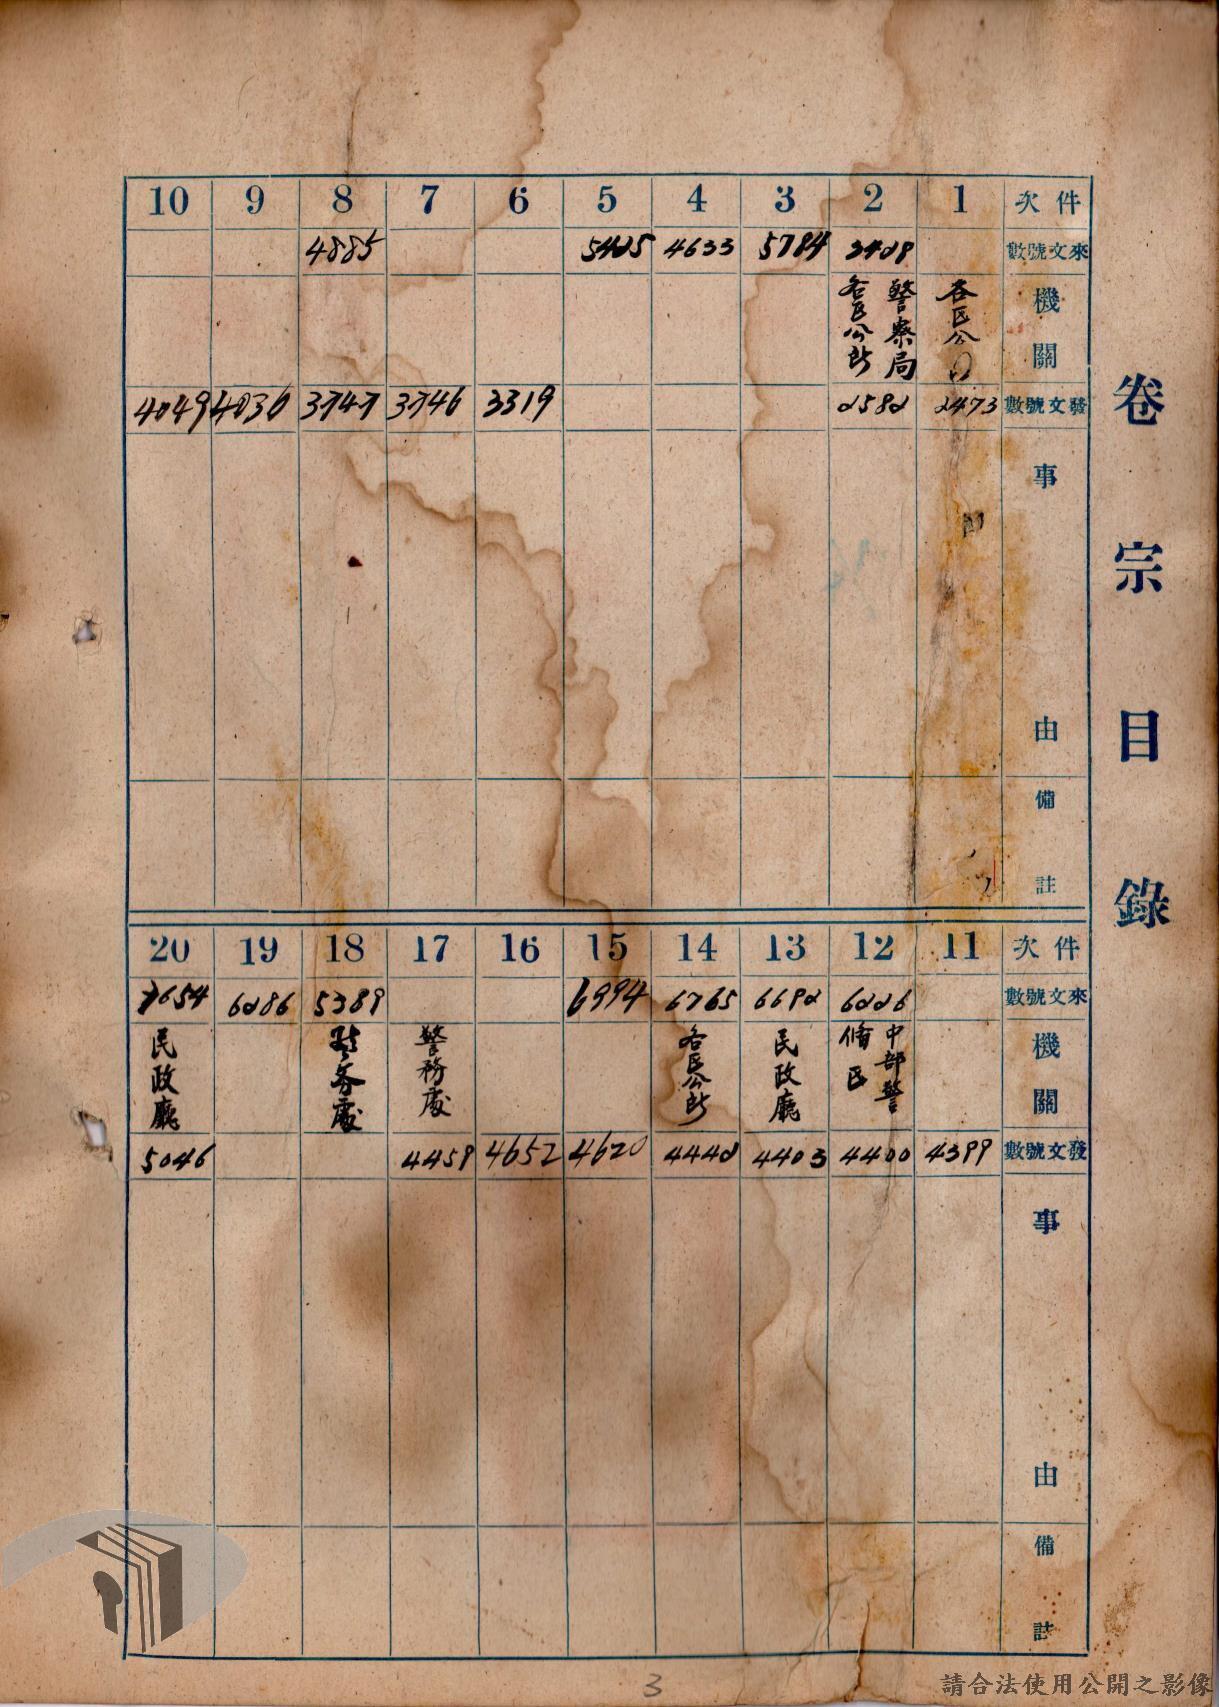 卷宗目錄
件次 1 2 3 4 5 6 7 8 9 10
來文號數 3784 4633 4885
機關 各區公 警察局 各區公所
發文號數 2473 2582 3319 3746 3747 4036 4049
事由
備註
件次 11 12 13 14 15 16 17 18 19 20
來文號數 6226 6692 6765 6994 5389 6286 7654
機關 中部警備區 民政廳 各區公所 警務處 民政廳
發文號數 4399 4400 4403 4442 4620 4652 4459 5046
事由
備註
3
請合法使用公開之影像